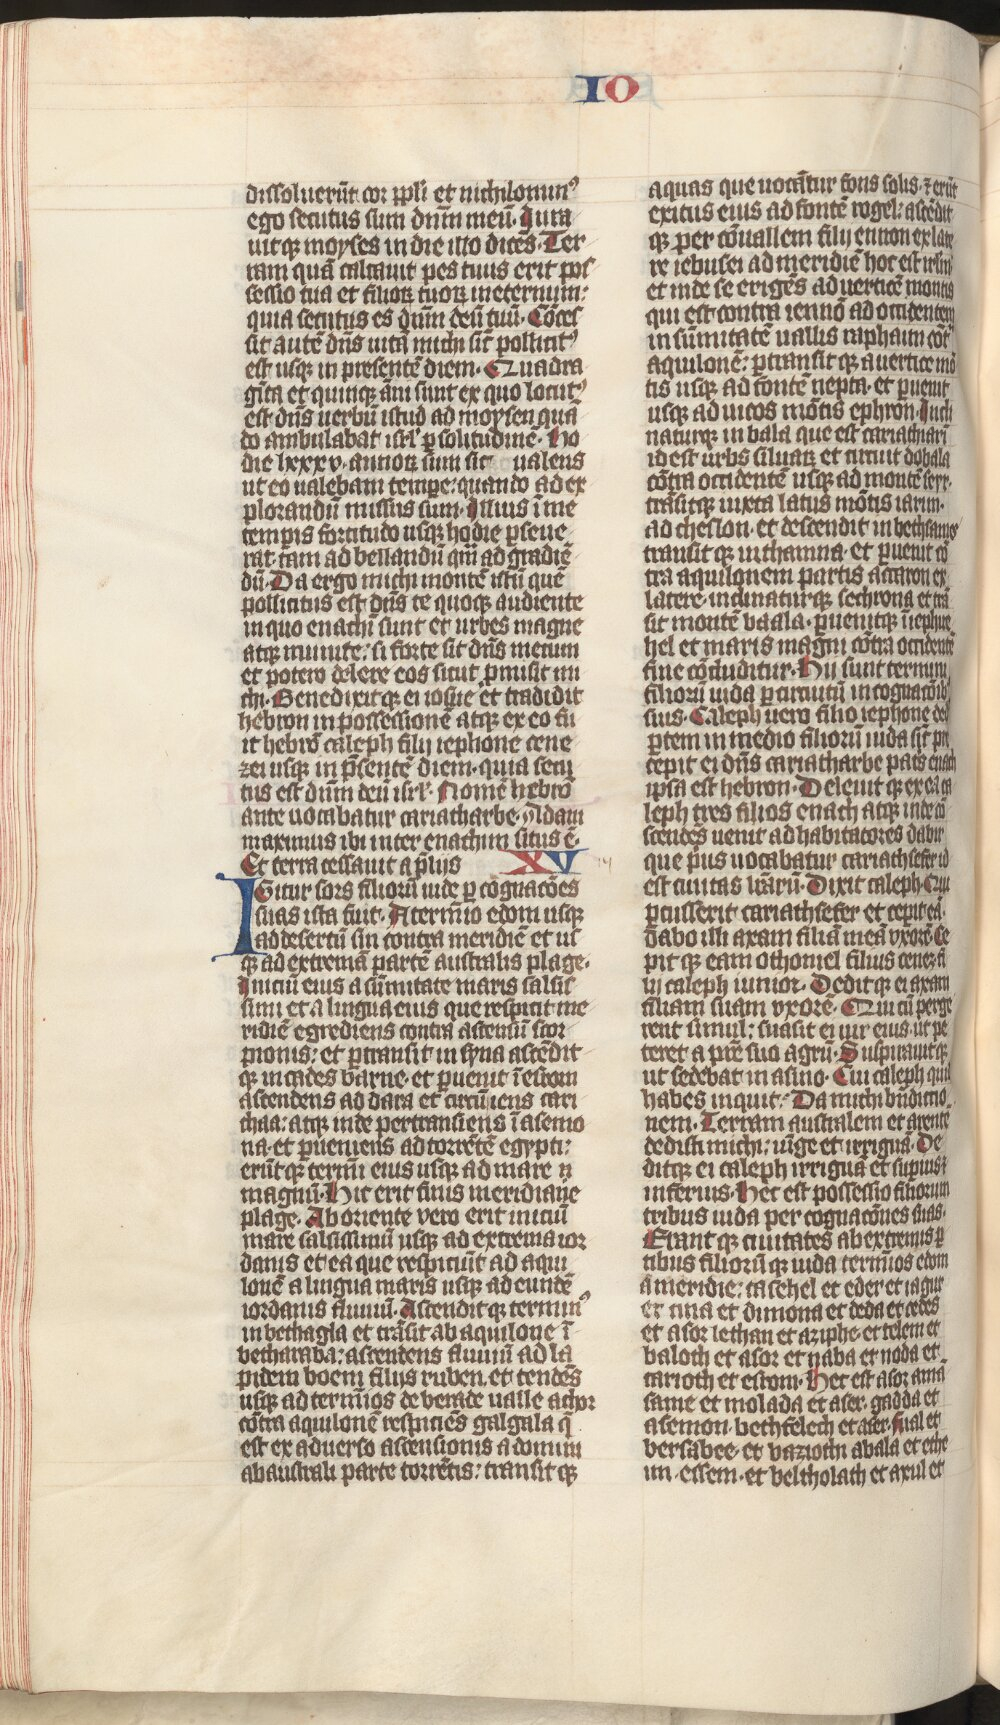 IO
dissoluerūt cor ppl̄i et nichilomin⁹
ego secutus sum dn̄m meū. Iura
uitqꝫ moyses in die illo dicēs. Ter
ram quā calcauit pes tuus erit pos
sessio tua et filioꝝ tuoꝝ ineternum:
quia secutus es dn̄m deū tuū. Cōces
sit autē dn̄s uitā michi sic̄ pollicit⁹
est usqꝫ in presentē diem. Quadra
gīta et quinqꝫ āni sunt ex quo locut⁹
est dn̄s uerbū istud ad moysen quā
do ambulabat isrl̄ ꝑ solitudinē. Ho
die lxxxv. annoꝝ sum sic ualens
ut eo ualebam tempe: quando ad ex
plorandū missus sum. Illius ī me
tempis fortitudo usqꝫ hodie ꝑseue
rat. tam ad bellandū qm̄ ad gradiē
dū. Da ergo michi montē istū quē
pollicitus est dn̄s te quoqꝫ audiente
in quo enachī sunt et urbes magne
atqꝫ munite: si forte sit dn̄s mecum
et potero delere eos sicut ꝓmisit mi
chi. Benedixitqꝫ ei iosue et tradidit
hebron in possessionē atqꝫ ex eo fu
it hebrō caleph filij iephone cene
zei usqꝫ in p̄sentē diem. quia secu
tus est dn̄m deū isrl̄. Nomē hebrō
ante uocabatur cariatharbe. Adam
maximus ibi inter enachim situs ē.
Et terra cessauit a p̄lijs XV
Igitur sors filiorū iude ꝑ cognacōes
suas ista fuit. A termīo edom usqꝫ
ad desertū sin contra meridiē et us
qꝫ ad extremā partē australis plage.
Iniciū eius a sūmitate maris salsis
simi et a lingua eius que respicit me
ridiē egrediens contra ascensū scor
pionis: et ꝑtransit in syna ascēdit
qꝫ in cades barne. et ꝑuenit ī esrom
ascendens ad dara et circūiens cari
chaa: atqꝫ inde pertransiens ī asemo
na. et ꝑueniens ad torrētē egypti:
erūtqꝫ termī eius usqꝫ ad mare
magnū. Hic erit finis meridiane
plage. Ab oriente vero erit iniciū
mare salsissimū usqꝫ ad extrema ior
danis et ea que respiciūt ad aqui
lonē a lingua maris usqꝫ ad eundē
iordanis fluuiū. Ascenditqꝫ termin⁹
in bethagla et trāsit ab aquilone ī
betharaba: ascendens fluuiū ad la
pidem boem filijs ruben. et tendēs
usqꝫ ad termīos de berade ualle achor
cōtra aquilonē respiciēs galgala q̄
est ex aduerso ascensionis adomim
ab australi parte torrētis: transitqꝫ
aquas que uocātur fons solis. ⁊ erūt
exitus eius ad fontē rogel: ascēdit
qꝫ per cōuallem filij ennon ex late
re iebusei ad meridiē hoc est irl̄m
et inde se erigēs ad uerticē montis
qui est contra iennō ad occidentem
in sūmitatē uallis raphaim cōt̄
aquilonē: ꝑtransitqꝫ a uertice mō
tis usqꝫ ad fontē nepta. et ꝑuenit
usqꝫ ad uicos mōtis ephron. Incli
naturqꝫ in bala que est cariathiari
id est urbs siluaꝝ et circuit dobala
cōtra occidentē usqꝫ ad montē seyr.
trāsitqꝫ iuxta latus mōtis iarim.
ad cheslon. et descendit in bethsames
transitqꝫ in thamna. et ꝑuenit cō
tra aquilonem partis accaron ex
latere. inclinaturqꝫ sechrona et trā
sit montē baala. ꝑuenitqꝫ
hel et maris magni cōtra occidentē
fine cōcluditur. Hij sunt termini
filiorū iuda ꝑ circuitū in cognacōib⁹
suis. Caleph uero filio iephone dedit
ꝑtem in medio filiorū iuda sic̄ pre
cepit ei dn̄s cariatharbe pris enach
ipsa est hebron. Deleuitqꝫ ex ea ca
leph tres filios enach atqꝫ inde cō
scendēs uenit ad habitatores dabir
que p̄us uocabatur cariathsefer id
est ciuitas lr̄arū. Dixit caleph. Qui
ꝑcusserit cariathsefer et ceꝑit eā.
dabo illi axam filiā meā uxorē. Ce
pitqꝫ eam othoniel filius cenez fr̄
caleph iunior. Deditqꝫ ei axam
filiam suam uxorē. Qui cū perge
rent simul: suasit ei uir eius. ut pe
teret a pr̄e suo agrū. Suspirauitqꝫ
ut sedebat in asino. Cui caleph quid
habes inquit. Da michi bn̄dictio
nem. Terram australem et arentē
dedisti michi: iūge et irriguā. De
ditqꝫ ei caleph irriguā et supius ⁊
inferius. Hec est possessio filiorum
tribus iuda per cognacōnes suas.
Erantqꝫ ciuitates ab extremis ꝑ
tibus filiorūqꝫ iuda termīos edom
a meridie: casehel et eder et iagur
et cina et dimona et deda et cedes
et asor iethan et aziphe. et telem et
baloth et asor et naba et noda et
carioth et esrom. Hec est asor ama
same et molada et aser. gadda et
asemon. bethfelech et aser. sual et
bersabee. et baziothi abala et ethe
im. essem. et beltholath et axul et